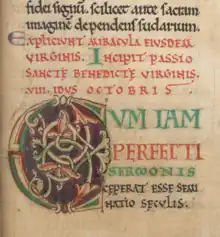 fidei signũ. scilicet ante sacram
imaginẽ dependens sudarium.
EXPLICIUNT MIRACULA EIUSDEM
VIRGINIS. INCIPIT PASSIO
SANCTE BENEDICTE VIRGINIS.
VIII. IDUS OCTOBRIS
CUM IAM
PERFECTI
SERMONIS
CEPERAT ESSE SEMI
NATIO SECULIS.